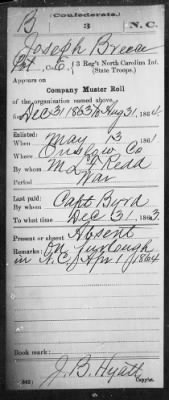 (Confederate.)
B 3 N.C.
Joseph
Co. E, 3 Reg't North Carolina Inf.
(State Troops.)
Appears on
Company Muster Roll
of the organization named above,
Dec 31 1863 to Aug 31, 1864
Enlisted:
When May 13 1861
Where Onslow Co
By whom M L F Redd
Period War
Last paid:
By whom Capt Byrd
To what time Dec 31, 1863
Present or absent Absent
Remarks: On furlough
in N.C. Apr 1 1864
Book mark:
J. B. Hyatt
(642) Copyist.